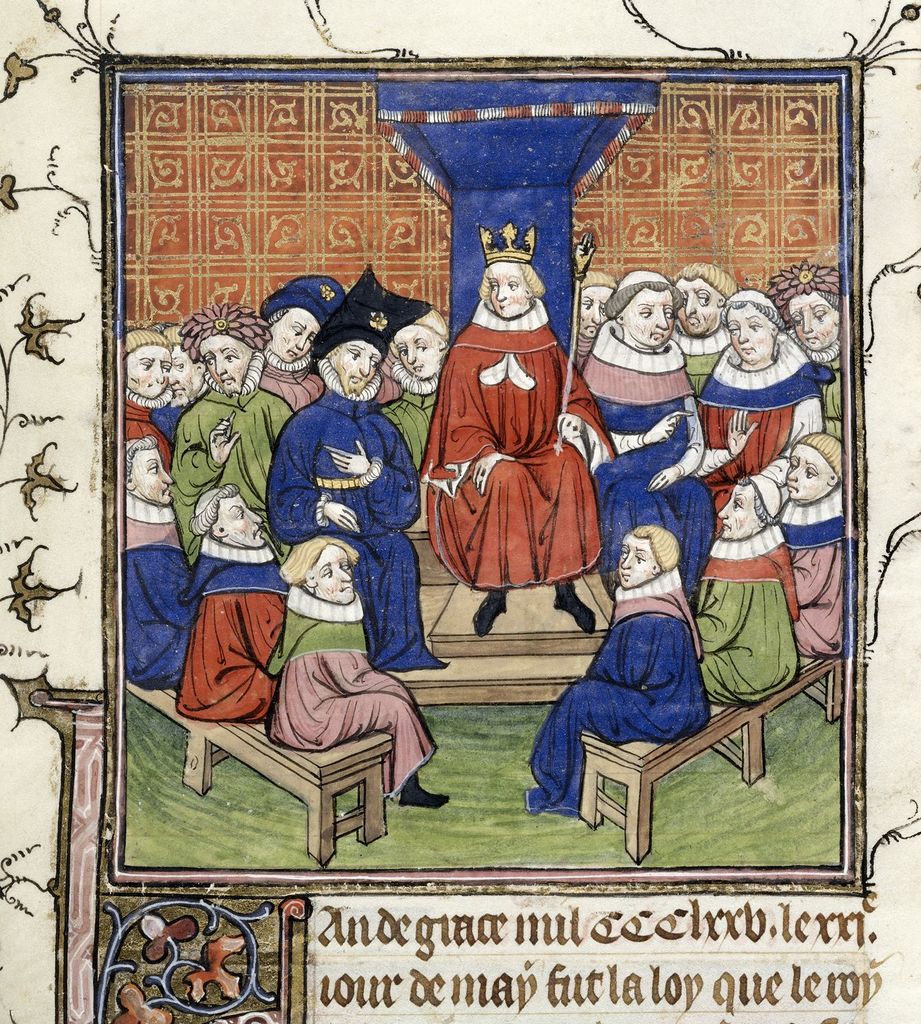 An de grace mil CCClxxv. le xxi.e
iour de may fut la loy que le roy